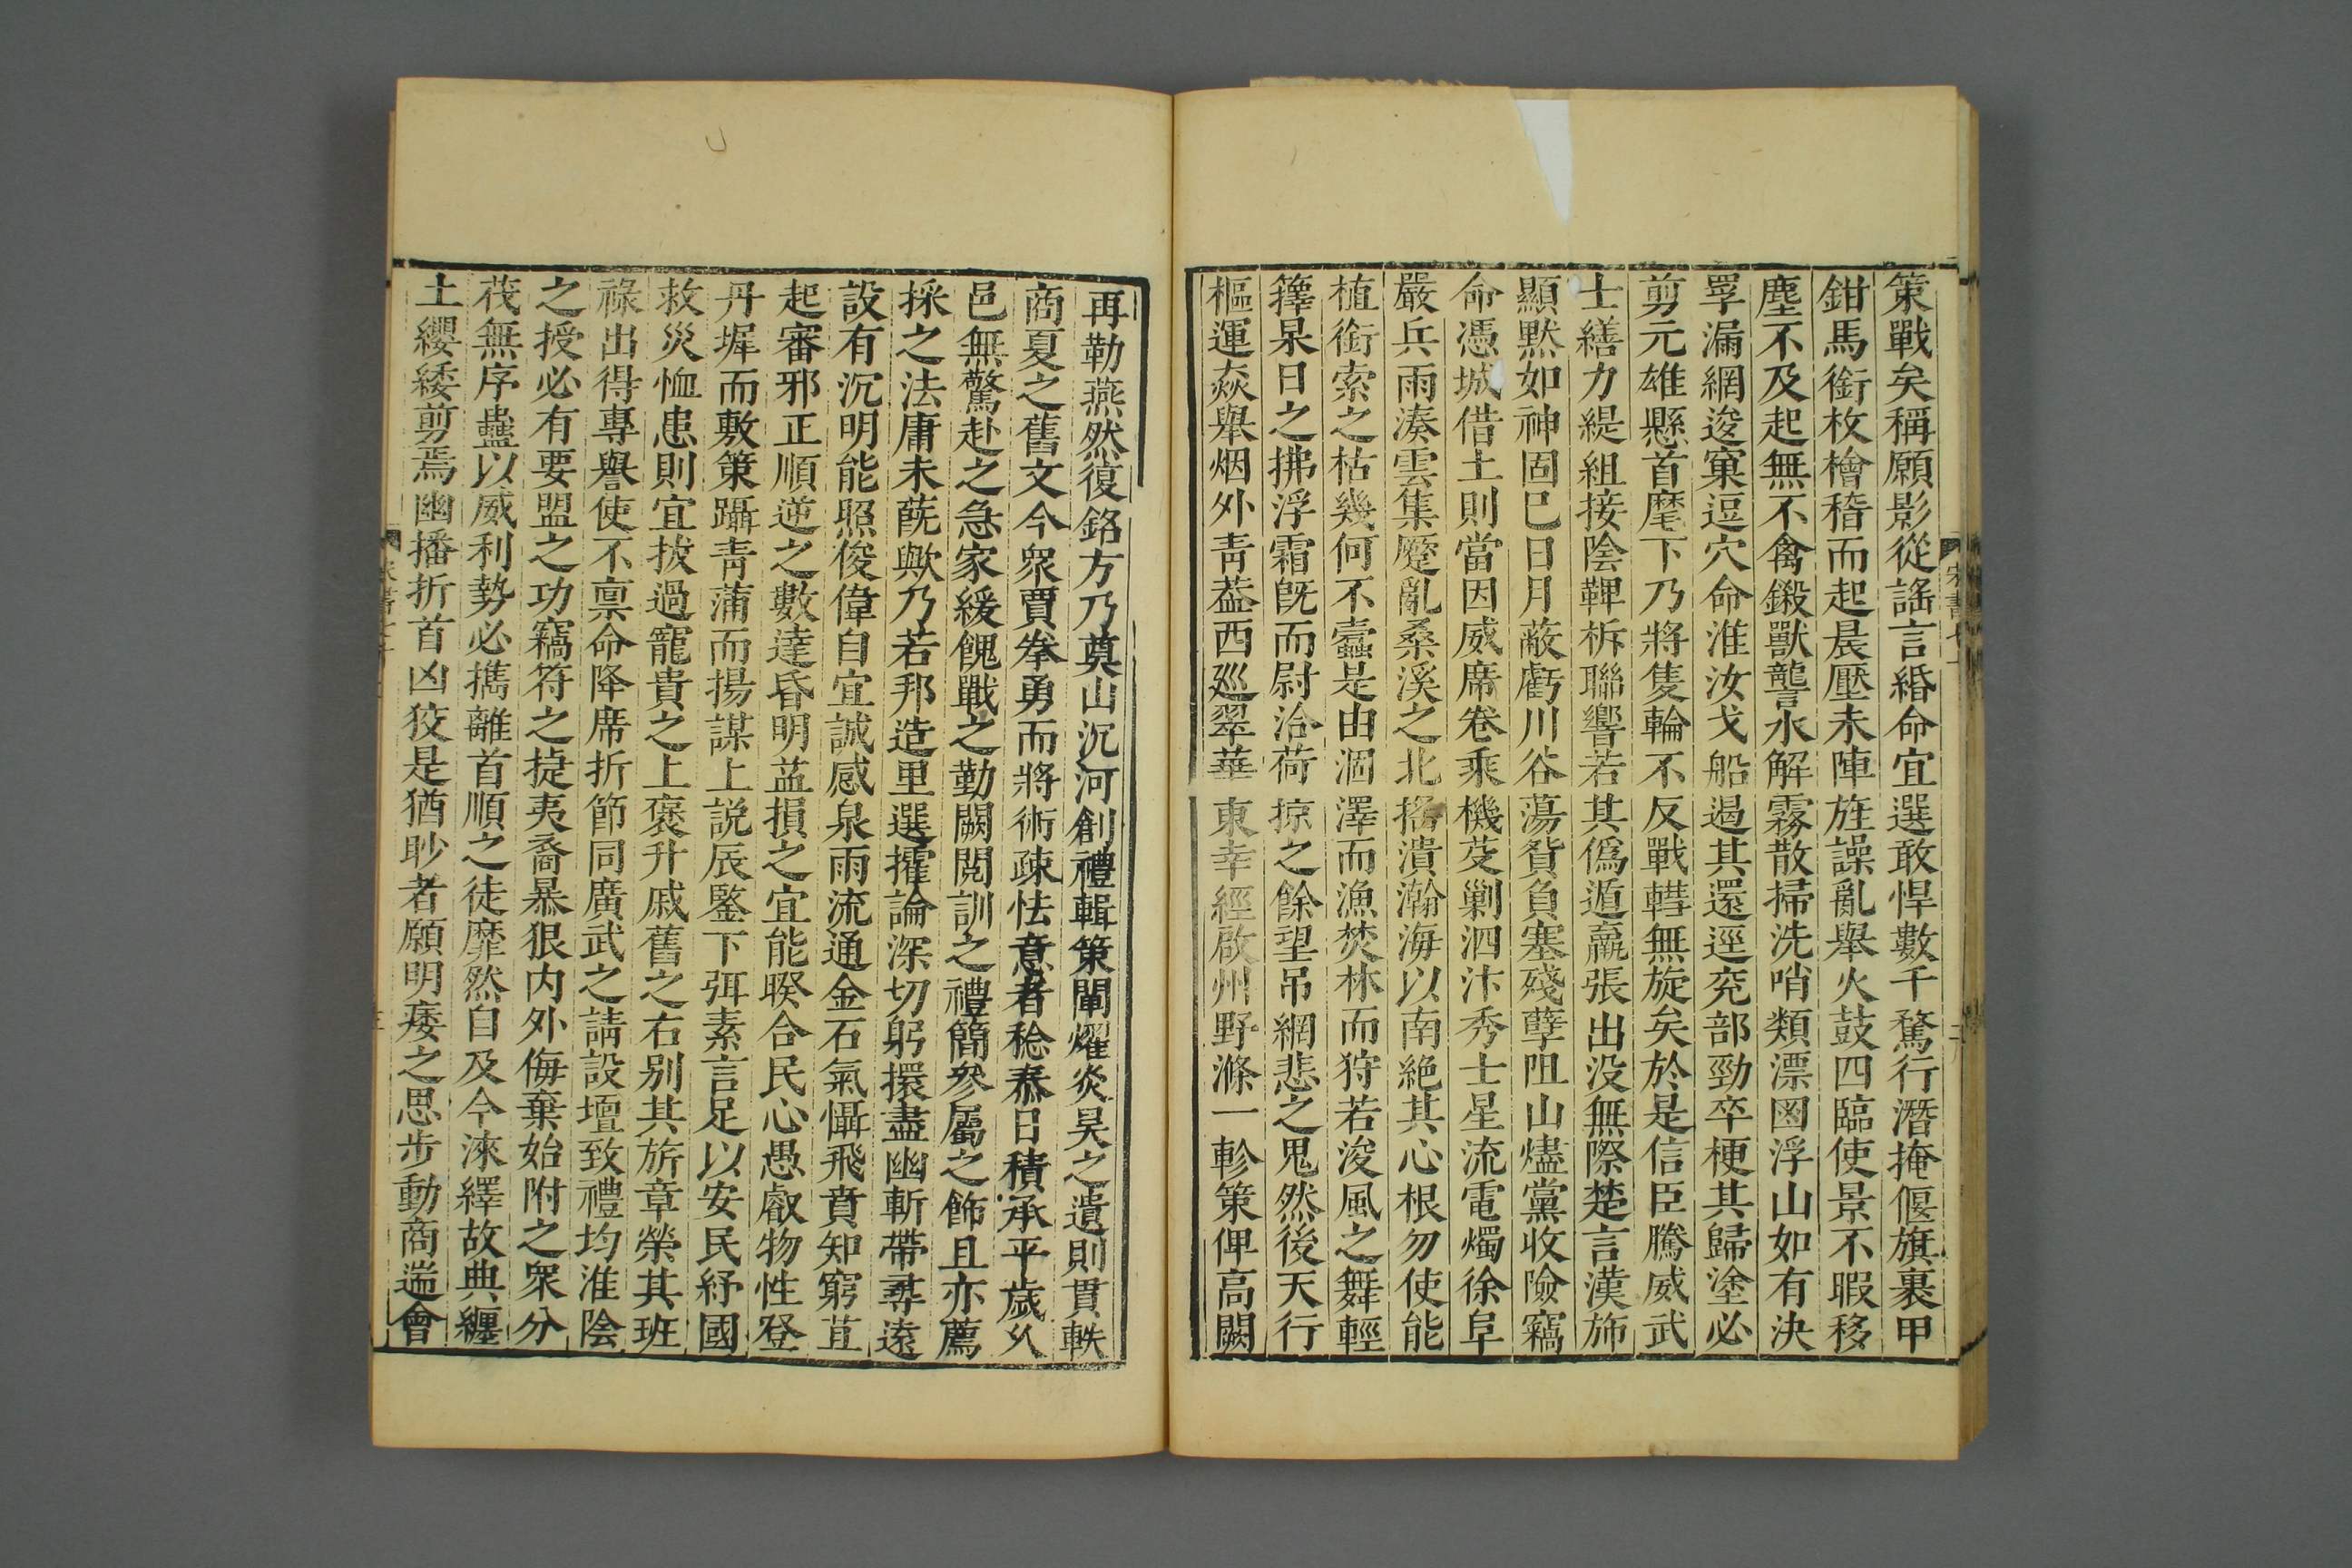 策戰矣稱願影從謠言緡命宜選敢悍數千騖行潛掩偃旗裹甲
鉗馬銜枚檜稽而起晨壓未陣旌譟亂舉火鼓四臨使景不暇移
塵不及起無不禽鎩獸讋氷解霧散掃洗哨類漂鹵浮山如有決
罦漏網逡窠逗穴命淮汝戈船遏其還逕兖部勁卒梗其歸塗必
剪元雄懸首麾下乃將隻輪不反戰轊無旋矣於是信臣騰威武
士繕力緹組接陰鞞柝聯響若其偽遁羸張出没無際楚言漢斾
顯默如神固巳日月蔽虧川谷蕩貲負塞殘孽阻山燼黨收險竊
命憑城借土則當因威席卷乘機芟剿泗汴秀士星流電燭徐阜
嚴兵雨湊雲集蹙亂桑溪之北摇潰瀚海以南絶其心根勿使能
植銜索之枯幾何不蠹是由涸澤而漁焚林而狩若浚風之舞輕
籜杲日之拂浮霜旣而尉洽荷掠之餘望吊網悲之鬼然後天行
樞運猋舉烟外青葢西廵翠華東幸經啟州野滌一軫策俾高闕
再勒燕然復銘方乃奠山沉河創禮輯策闡燿炎昊之遺則貫軼
商夏之舊文今衆賈拳勇而將術疎怯意者稔㤗日積承平歲乆
邑無驚赴之急家緩餽戰之勤闕閲訓之禮簡參屬之飾且亦薦
採之法庸未蓜歟乃若邦造里選攉論深切躬擐盡幽斬帶尋遠
設有沉明能照俊偉自宜誠感泉雨流通金石氣懾飛賁知窮苴
起審邪正順逆之數達昏明葢損之宜能睽合民心愚叡物性登
丹墀而敷策躡青蒲而揚謀上説辰鍳下弭素言足以安民紓國
救災恤患則宜拔過寵貴之上褒升戚舊之右别其旂章榮其班
祿出得專譽使不禀命降席折節同廣武之請設壇致禮均淮陰
之授必有要盟之功竊符之捷夷裔暴狠内外侮棄始附之衆分
茷無序蠱以威利勢必攜離首順之徒靡然自及今淶繹故典纒
土纓緌剪焉幽播折首凶狡是猶眇者願明痿之思步動商遄會
宋書七十